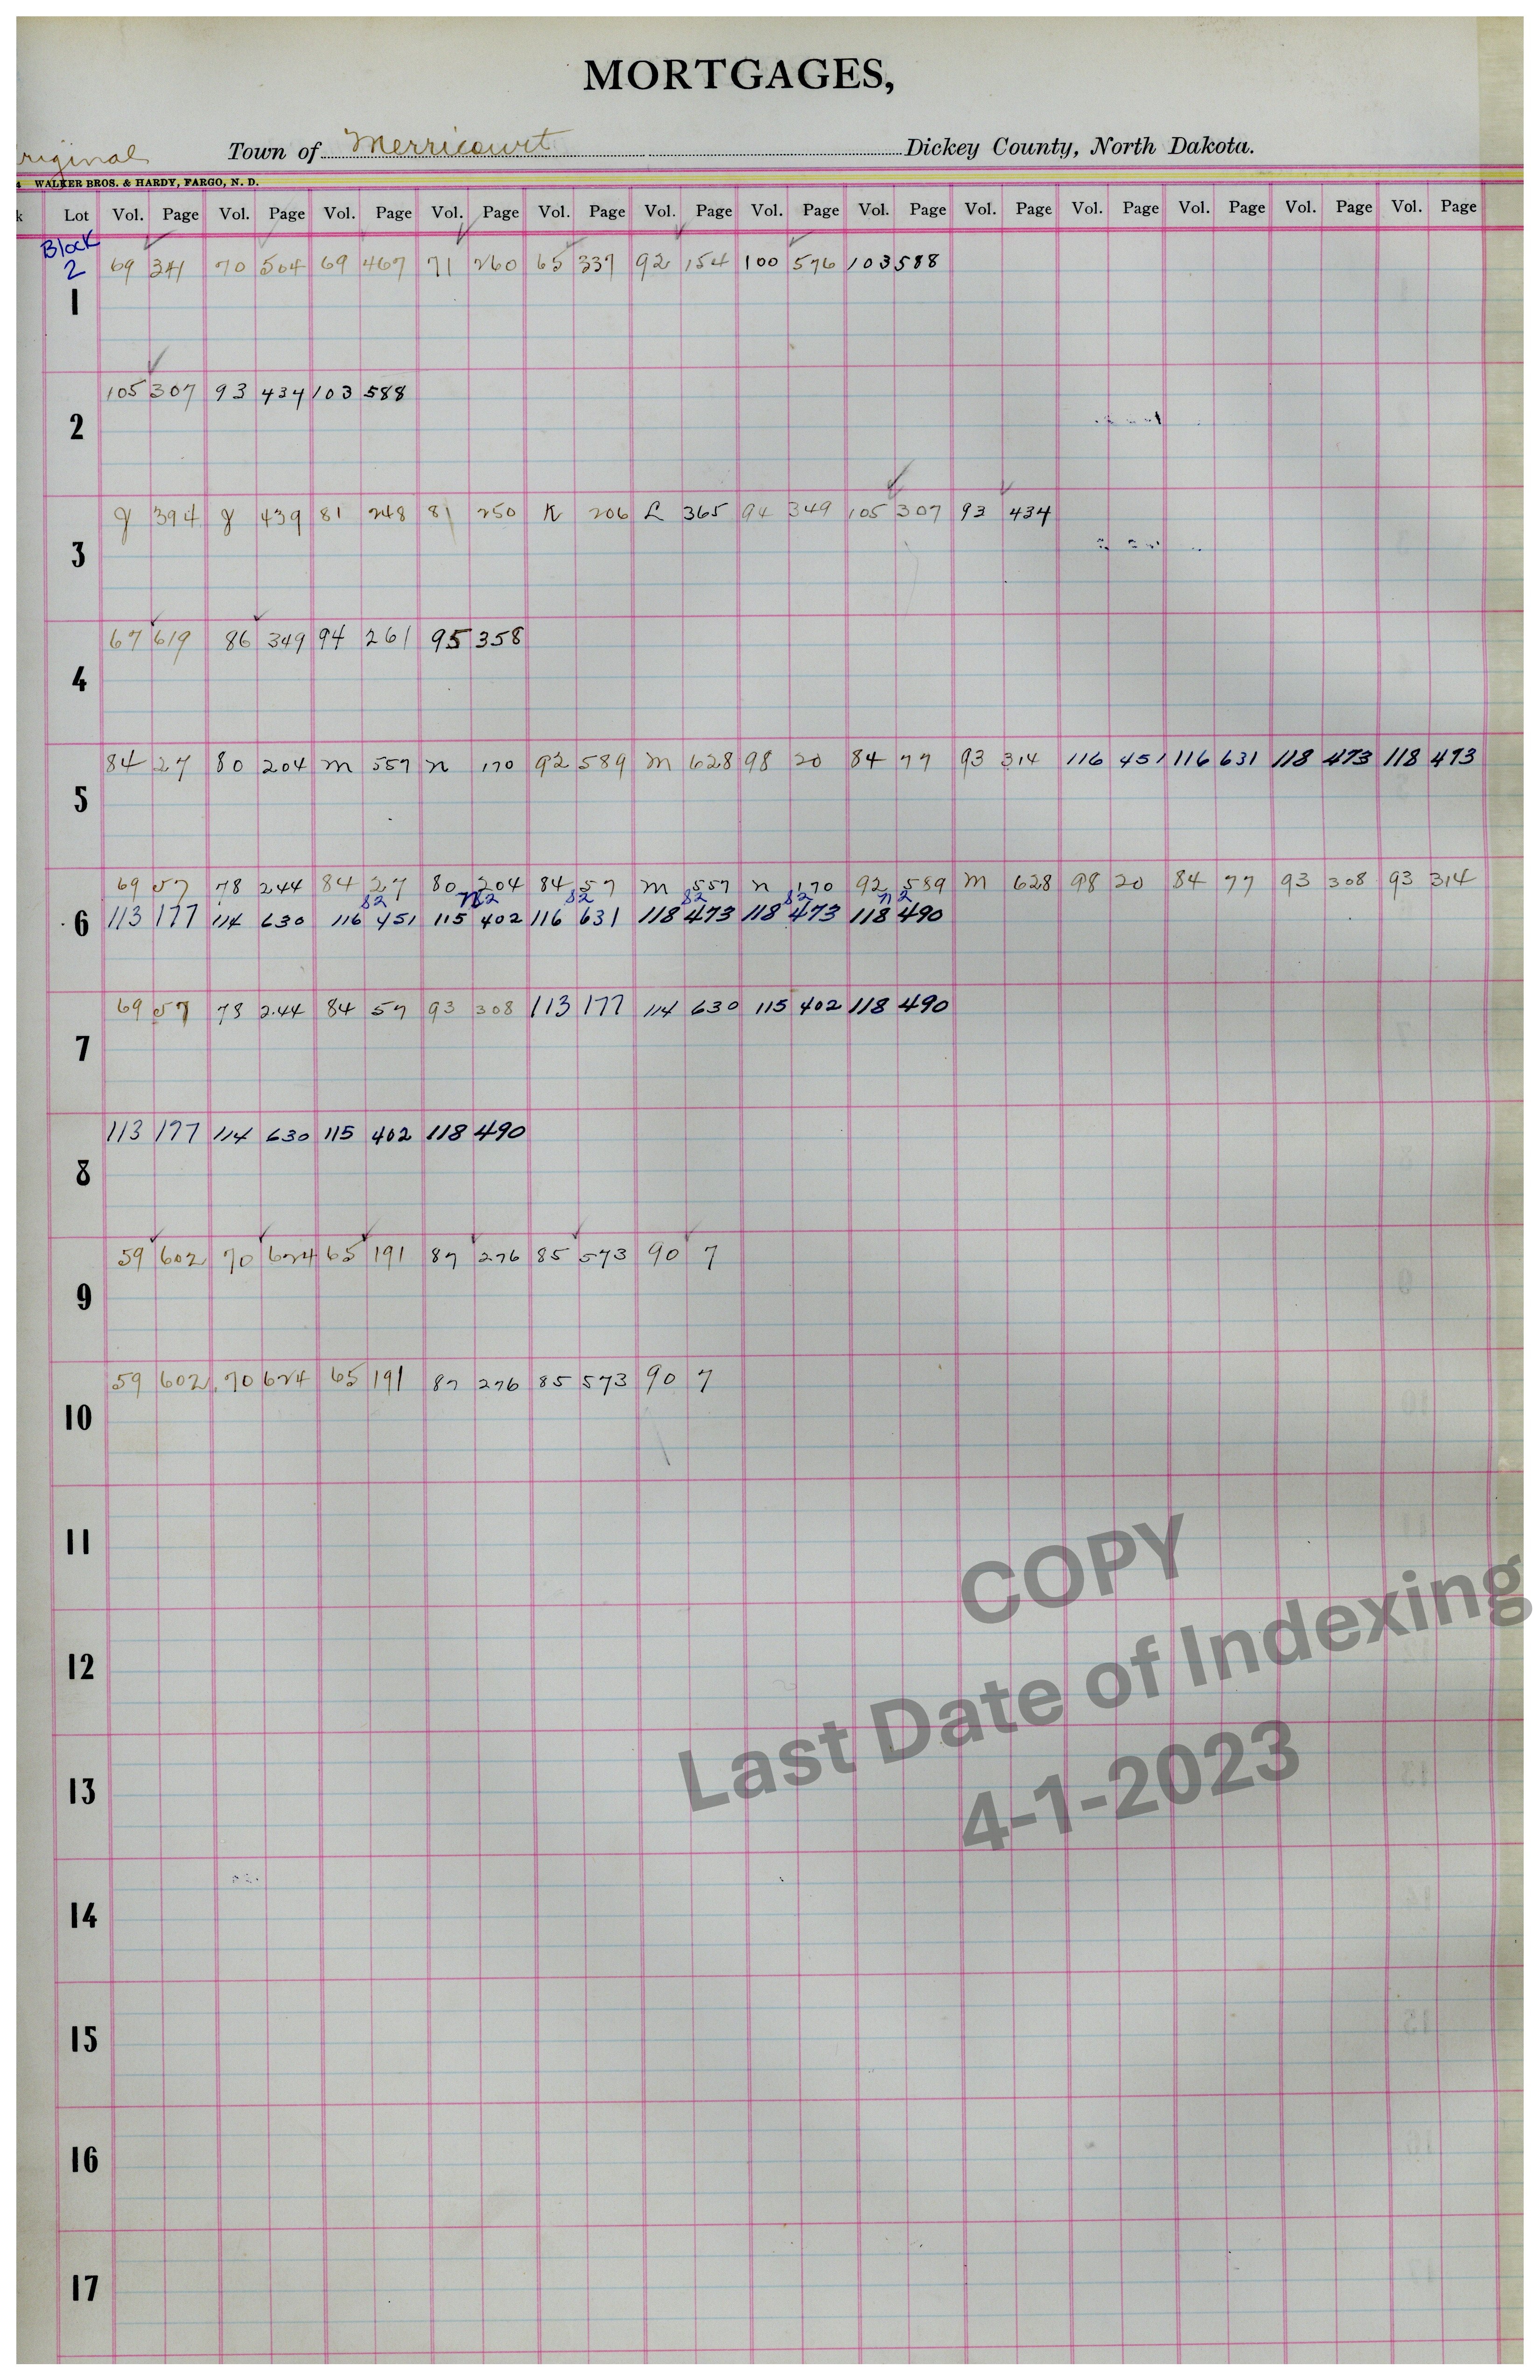 MORTGAGES,
riginal Town of Merricourt Dickey County, North Dakota.
4 WALKER BROS. & HARDY, FARGO, N. D.
k Lot Vol. Page Vol. Page Vol. Page Vol. Page Vol. Page Vol. Page Vol. Page Vol. Page Vol. Page Vol. Page Vol. Page Vol. Page Vol. Page
Block
2 69 341 70 504 69 467 71 260 65 337 92 154 100 576 103 588
1
105 307 93 434 103 588
2
394 439 81 248 81 250 K 206 L 365 94 349 105 307 93 434
3
67 619 86 349 94 261 95 358
4
84 27 80 204 m 557 n 170 92 589 m 628 98 20 84 77 93 314 116 451 116 631 118 473 118 493
5
69 57 78 244 84 27 80 204 84 57 m 557 n 170 92 589 m 628 98 20 84 77 93 308 93 314
S2 N2 S2 S2 S2 N2
6 113 177 114 630 116 451 115 402 116 631 118 473 118 473 118 490
69 57 78 244 84 57 93 308 113 177 114 630 115 402 118 490
7
113 177 114 630 115 402 118 490
8
59 602 70 624 65 191 87 276 85 573 90 7
9
59 602 70 624 65 191 87 276 85 573 90 7
10
11
12
13
14
15
16
17
COPY
Last Date of Indexing
4-1-2023